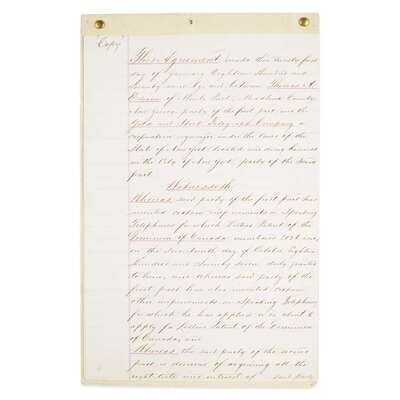 "Copy"
This Agreement made this twenty first
day of January Eighteen Hundred and
Seventy nine by and between Thomas A.
Edison of Menlo Park, Middlesex County
New Jersey party of the first part and the
Gold and Stock Telegraph Company a
corporation organized under the laws of the
State of New York located and doing business
in the City of New York, party of the second
part.
Witnesseth
Whereas said party of the first part has
invented certain improvements in Speaking
Telephones for which Letters Patent of the
Dominion of Canada numbered were
on the seventeenth day of October Eighteen
hundred and seventy seven duly granted
to him, and whereas said party of the
first part has also invented certain
other improvements in Speaking Telephones
for which he has applied or is about to
apply for Letters Patent of the Dominion
of Canada, and
Whereas the said party of the second
part is desirous of acquiring all the
right title and interest of said party